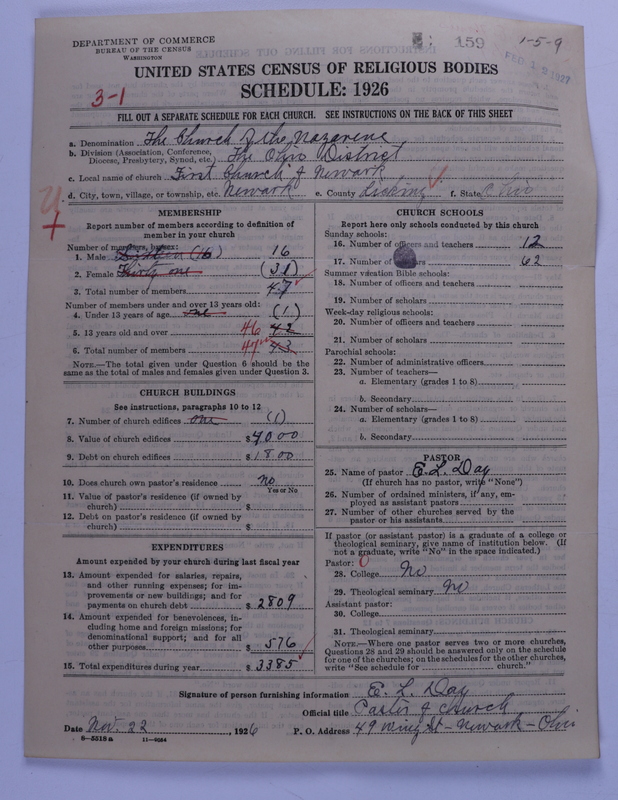 DEPARTMENT OF COMMERCE
BUREAU OF THE CENSUS
WASHINGTON
159
1-5-9
UNITED STATES CENSUS OF RELIGIOUS BODIES
3-1
SCHEDULE: 1926
FILL OUT A SEPARATE SCHEDULE FOR EACH CHURCH. SEE INSTRUCTIONS ON THE BACK OF THIS SHEET
a. Denomination The Church of the Nazarene
b. Division (Association, Conference, Diocese, Presbytery, Synod, etc.) The Ohio District
c. Local name of church First Church of Newark
d. City, town, village, or township, etc. Newark e. County Licking f. State Ohio
MEMBERSHIP
Report number of members according to definition of
member in your church
Number of members, by sex:
1. Male (16) 16
2. Female Thirty one (31)
3. Total number of members 47
Number of members under and over 13 years old:
4. Under 13 years of age one (1)
5. 13 years old and over 46 42
6. Total number of members 47 43
NOTE.—The total given under Question 6 should be
same as the total of males and females given under Question 3.
CHURCH BUILDINGS
See instructions, paragraphs 10 to 12
7. Number of church edifices one (1)
8. Value of church edifices $4000
9. Debt on church edifices $1800
10. Does church own pastor's residence No
Yes or No
11. Value of pastor's residence (if owned by
church) $
12. Debt on pastor's residence (if owned by
church) $
EXPENDITURES
Amount expended by your church during last fiscal year
13. Amount expended for salaries, repairs,
and other running expenses; for im-
provements or new buildings; and for
payments on church debt $2809
14. Amount expended for benevolences, in-
cluding home and foreign missions; for
denominational support; and for all
other purposes $576
15. Total expenditures during year $3385
CHURCH SCHOOLS
Report here only schools conducted by this church
Sunday schools:
16. Number of officers and teachers 12
17. Number of 62
Summer vacation Bible schools:
18. Number of officers and teachers
19. Number of scholars
Week-day religious schools:
20. Number of officers and teachers
21. Number of scholars
Parochial schools:
22. Number of administrative officers
23. Number of teachers—
a. Elementary (grades 1 to 8)
b. Secondary
24. Number of scholars—
a. Elementary (grades 1 to 8)
b. Secondary
PASTOR
25. Name of pastor E. L. Day
(If church has no pastor, write "None")
26. Number of ordained ministers, if any, em-
ployed as assistant pastors
27. Number of other churches served by the
pastor or his assistants
If pastor (or assistant pastor) is a graduate of a college or
theological seminary, give name of institution below. (If
not a graduate, write "No" in the space indicated.)
Pastor: 0
28. College No
29. Theological seminary No
Assistant pastor:
30. College
31. Theological seminary
NOTE.—Where one pastor serves two or more churches,
Questions 28 and 29 should be answered only on the schedule
for one of the churches; on the schedules for the other churches,
write "See schedule for church."
Signature of person furnishing information E. L. Day
Official title Pastor of church
Date Nov. 22, 1926 P. O. Address 49 St - Newark - Ohio
8-5518a 11-9064